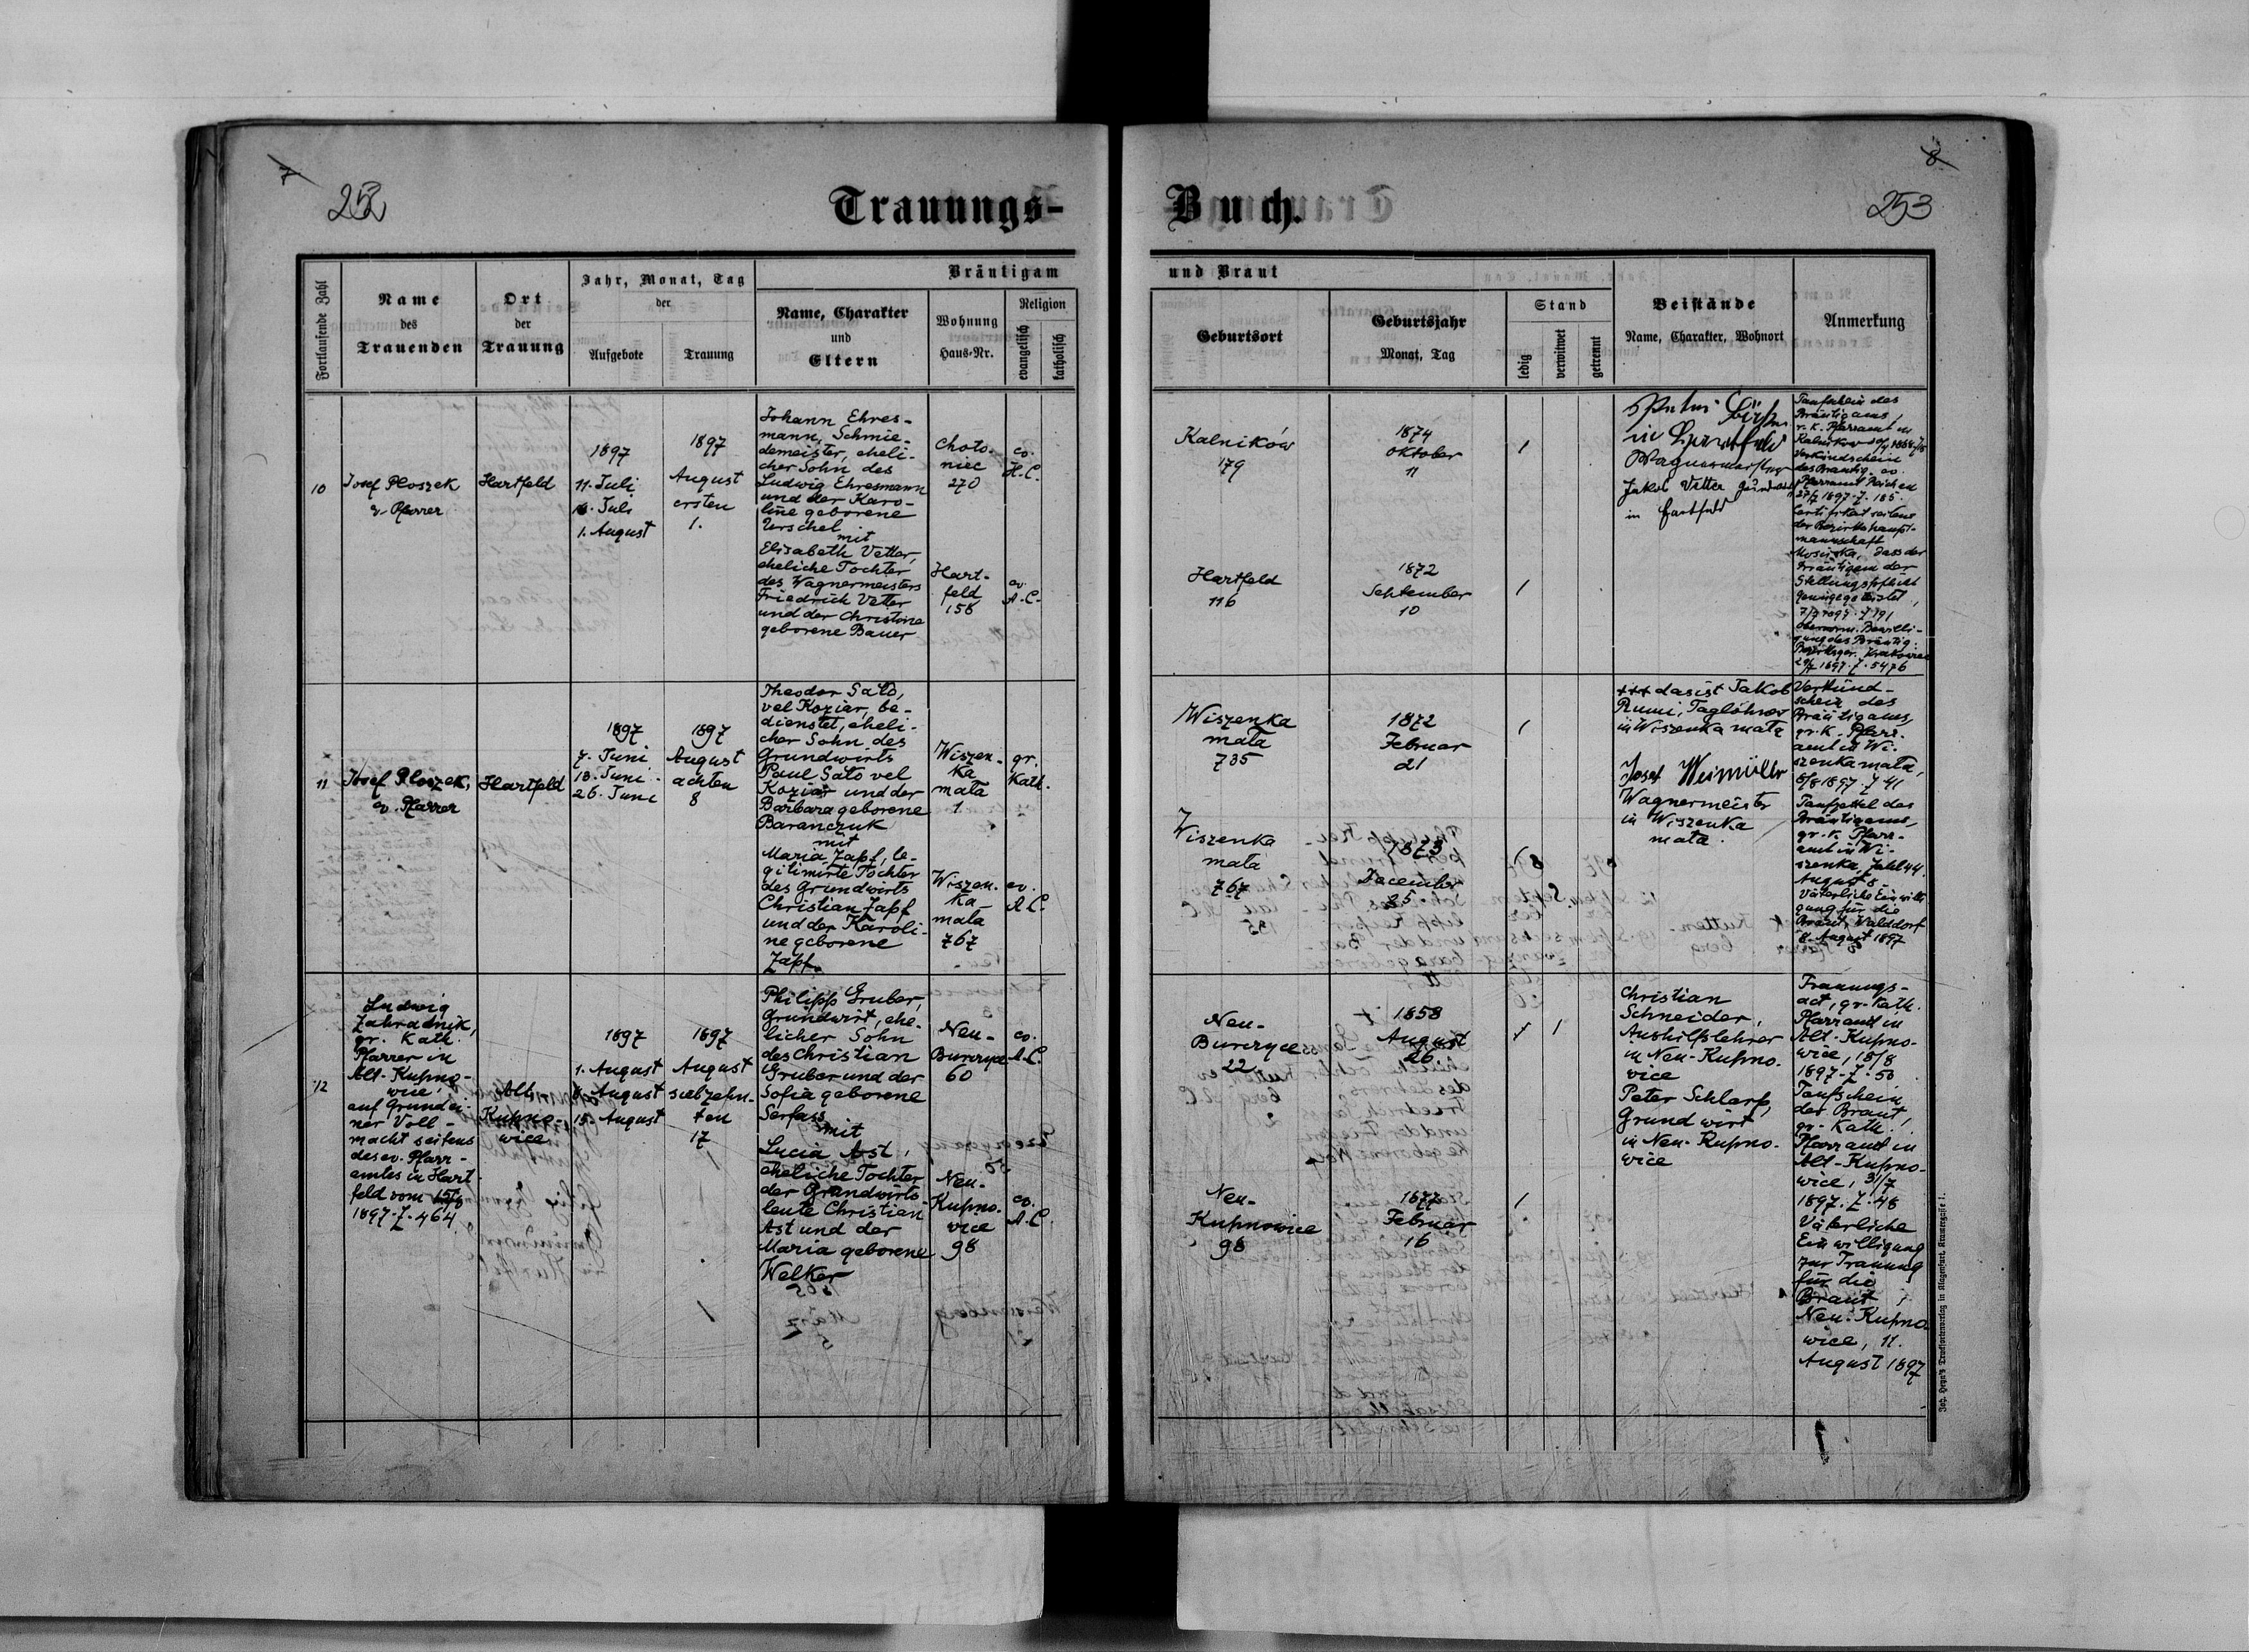 7
252
Trauungs-
Fortlaufende Zahl
Name
des
Trauenden
Ort
der
Trauung
Jahr, Monat, Tag
der
Aufgebote
Trauung
Bräutigam
Name, Charakter
und
Eltern
Wohnung
Haus-Nr.
Religion
evangelisch
katholisch
10
Josef Ploszek
ev. Pfarrer
Hartfeld
1897
11. Juli
Juli
1. August
1897
August
ersten
1.
Johann Ehres-
mann, Schmie-
demeister, eheli-
cher Sohn des
Ludwig Ehresmann
und der Karo-
line geborene
Urschel
mit
Elisabeth Vetter,
eheliche Tochter
des Wagnermeisters
Friedrich Vetter
und der Christine
geborene Bauer
Choto-
niec
270
ev.
H.C.
Hart-
feld
158
ev.
A.C.
11
Josef Ploszek,
ev. Pfarrer
Hartfeld
1897
7. Juni
13. Juni
26. Juni
1897
August
achten
8
Theodor Sało,
vel Koziar, be-
dienstet, eheli-
cher Sohn des
Grundwirts
Paul Sało vel
Koziar und der
Barbara geborene
Baranczuk
mit
Maria Zapf, le-
gitimirte Tochter
des Grundwirts
Christian Zapf
und der Karoli-
ne geborene
Zapf.
Wiszen-
ka
mała
1
gr.
Kath.
Wiszen-
ka
mała
767
ev.
A.C.
12
Ludwig
Zahradnik,
gr. Kath.
Pfarrer in
Alt-Kupno-
wice,
auf Grund ei-
ner Voll-
macht seitens
des ev. Pfarr-
amtes in Hart-
feld vom 15/8
1897. Z. 464
Alt-
Kupno-
wice
1897
1. August
8. August
15. August
1897
August
siebzehn-
ten
17
Philipp Gruber,
Grundwirt, ehe-
licher Sohn
des Christian
Gruber und der
Sofia geborene
Serfass
mit
Lucia Ast,
eheliche Tochter
der Grundwirts-
leute Christian
Ast und der
Maria geborene
Welker
Neu-
Burczyce
60
ev.
A.C.
Neu-
Kupno-
wice
98
ev.
A.C.
8
253
Buch.
und Braut
Geburtsort
Geburtsjahr
Monat, Tag
Stand
ledig
verwitwet
getrennt
Beistände
Name, Charakter, Wohnort
Anmerkung
Kalników
179
1874
Oktober
11
1
Hartfeld
116
1872
September
10
1
in Hartfeld
Wagnermeister
Jakob Vetter
in Hartfeld
Taufschein des
Bräutigams,
r.-k. Pfarramt in
Kalnikow
Verkündschein
des Bräutig. ev.
Pfarramt Reichau
27/7 1897. Z. 185.
Certifikat seitens
der Bezirkshaupt-
mannschaft
Mosciska, dass der
Bräutigam der
Stellungspflicht
genüge geleistet,
Bewilli-
gung des Bräutig.
Bezirksger. Krakowiec
1897. Z. 5476
Wiszenka
mała
735
1872
Februar
21
1
Wiszenka
mała
767
1873
December
25.
+++ das ist Jakob
Rumi, Taglöhner
in Wiszenka mała
Josef Weimüller
Wagnermeister
in Wiszenka
mała.
Verkünd-
schein des
Bräutigams,
gr.-k. Pfarr-
amt in Wi-
szenka mała,
8/8 1897. Z. 41
Taufzettel des
Bräutigams,
gr.-k. Pfarr-
amt in Wi-
szenka, Zahl 44.
August 8.
Väterliche Einwilli-
gung für die
Braut, Walddorf
8. August 1897
Neu-
Burczyce
22
1858
August
26.
1
Neu-
Kupnowice
98
1877
Februar
16
1
Christian
Schneider,
Aushilfslehrer
in Neu-Kupno-
wice
Peter Schlarp,
Grundwirt
in Neu-Kupno-
wice
Trauungs-
act, gr.-Kath.
Pfarramt in
Alt-Kupno-
wice, 18/8
1897. Z. 50
Taufschein
der Braut,
gr.-Kath.
Pfarramt in
Alt-Kupno-
wice, 31/7
1897. Z. 48
Väterliche
Einwilligung
zur Trauung
für die
Braut
Neu-Kupno-
wice, 11.
August 1897